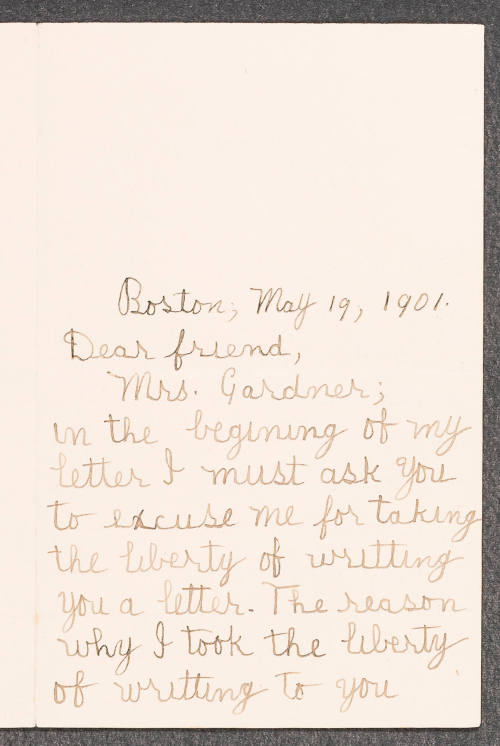 Boston, May 19, 1901.
Dear friend,
Mrs. Gardner;
in the begining of my
letter I must ask you
to excuse me for taking
the liberty of writting
you a letter. The reason
why I took the liberty
of writting to you